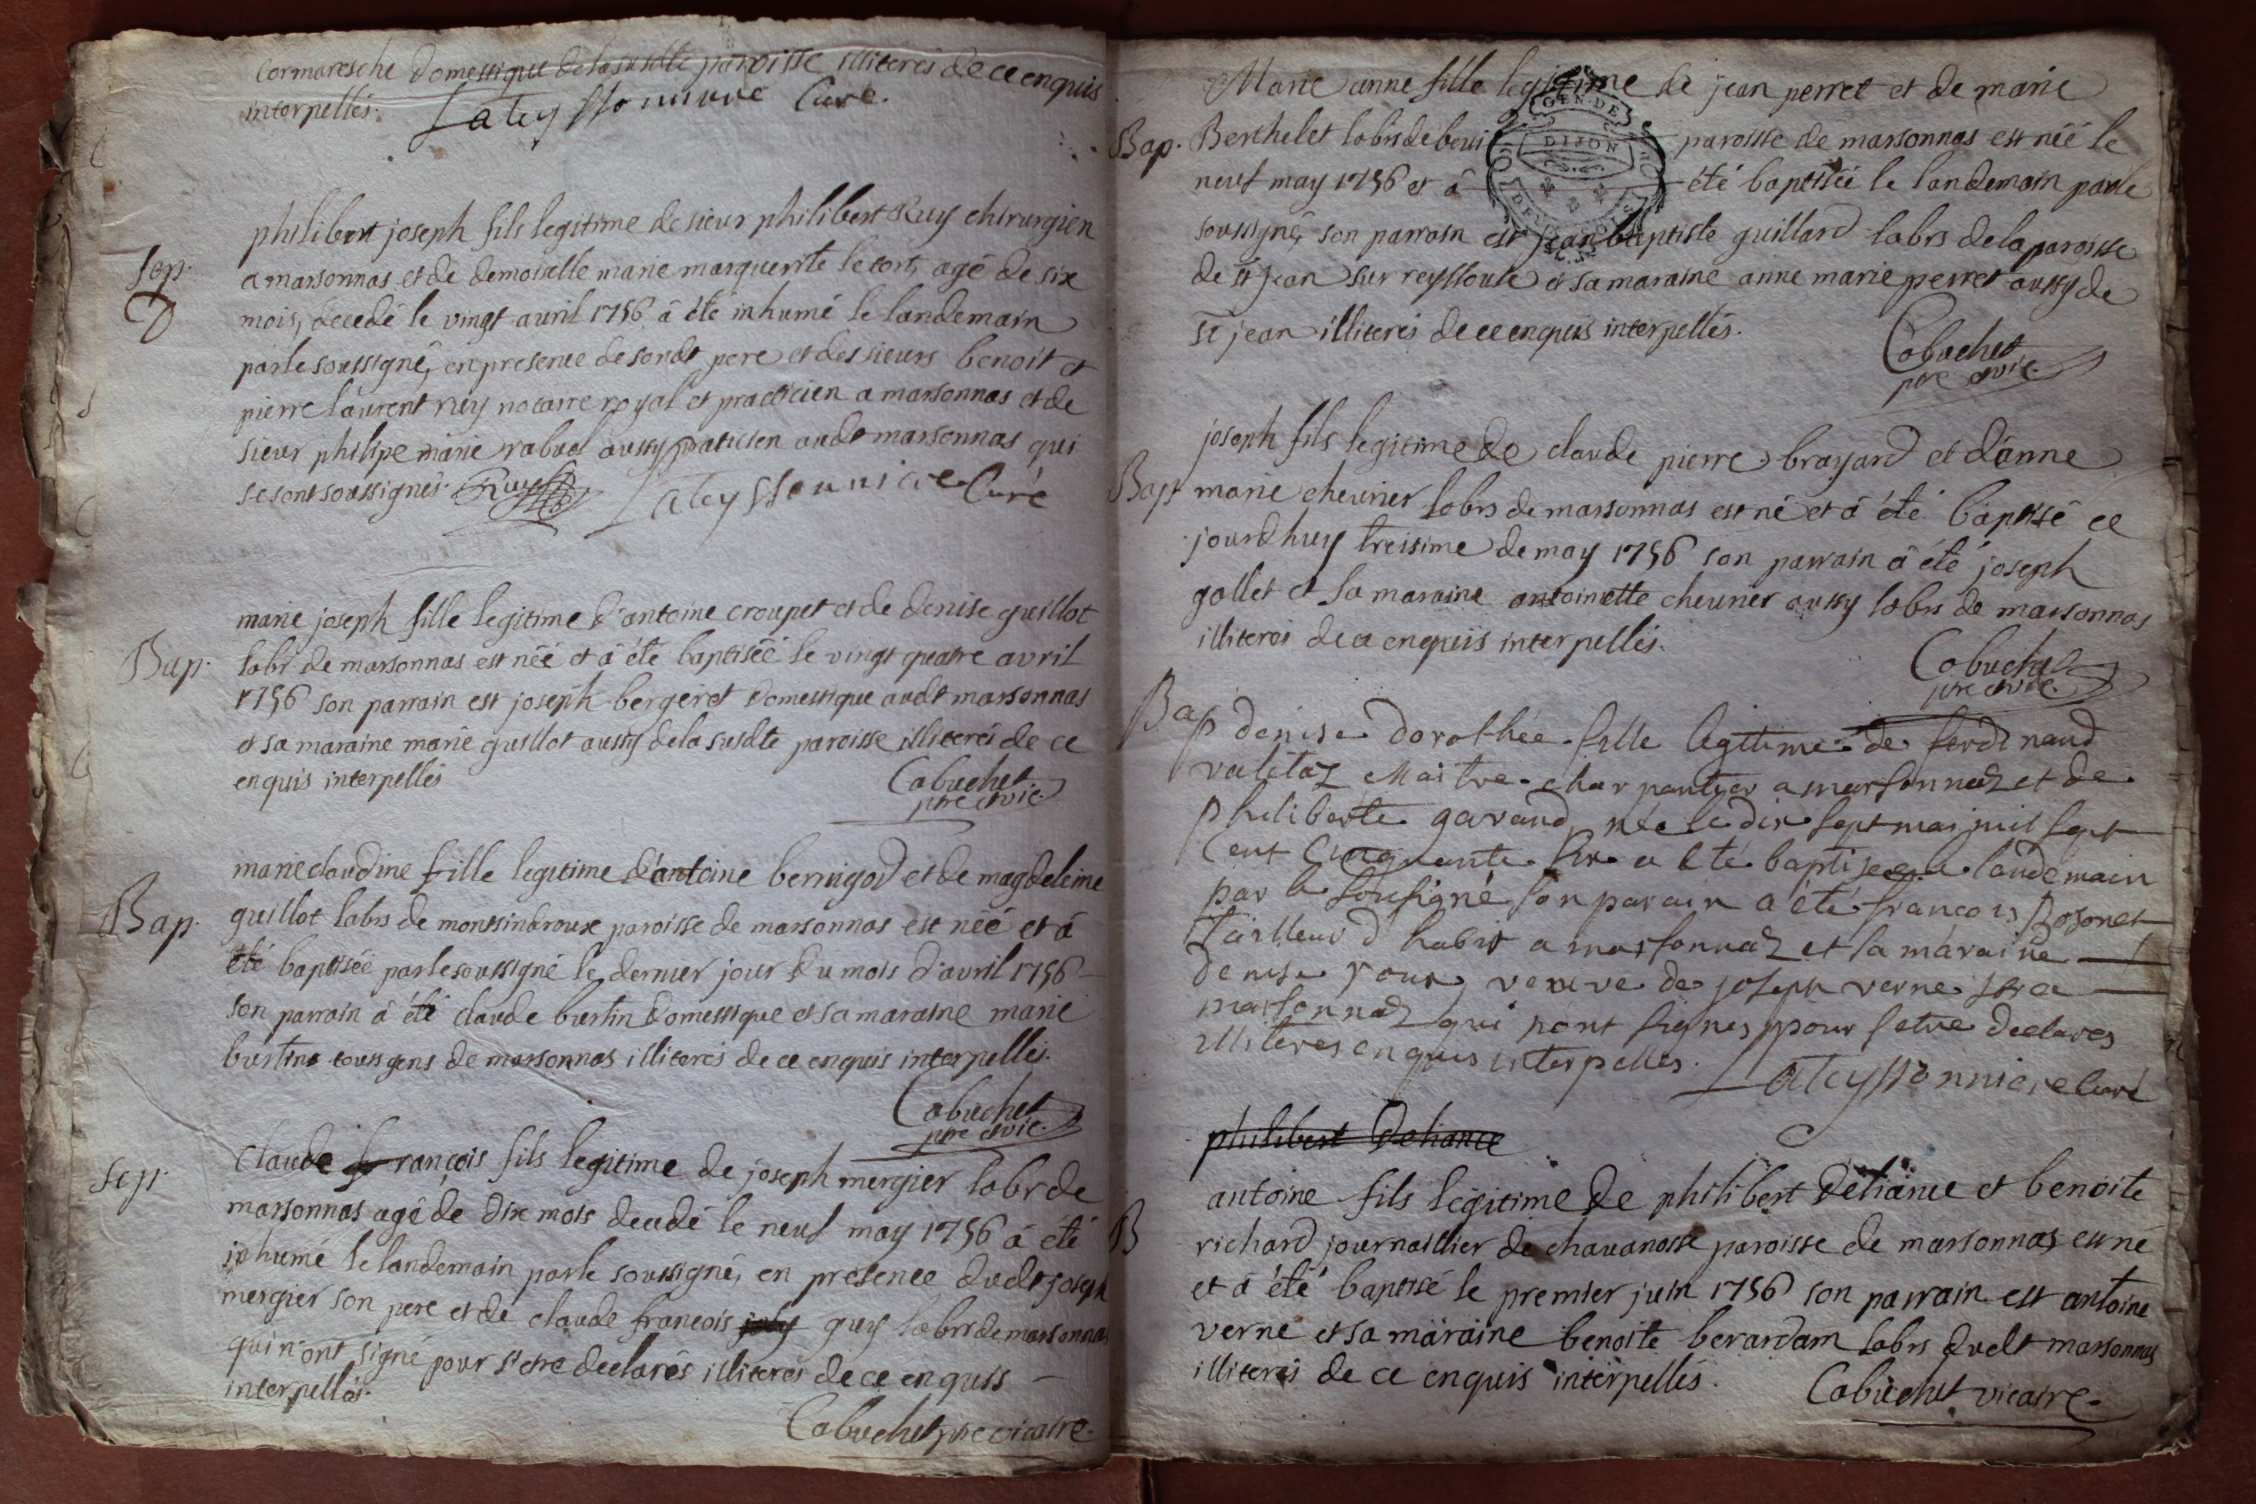 Cormaresche domestique de la susdte paroisse illiterés de ce enquis
interpellés. Lateyssonniere Curé.
philibert joseph fils legitime de sieur philibert Ruy chirurgien
Sep.
a marsonnas et de demoiselle marie marguerite le tort, agé de six
mois, decedé le vingt avril 1756 â été inhumé le landemain
par le soussigné, en presence de sondt pere et des sieurs benoit et
pierre laurent ruy notaire royal et practicien a marsonnas et de
sieur philipe marie rabuel aussy praticien audt marsonnas qui
se sont soussignés. Ruy Lateyssonniere Curé
marie joseph fille legitime d'antoine croupet et de denise guillot
Bap. labr de marsonnas est néé et â été baptiséé le vingt quatre avril
1756 son parrain est joseph bergeret domestique audt marsonnas
et sa maraine marie guillot aussy de la susdte paroisse illiterés de ce
enquis interpellés
Cabuchet
ptre et vic.
marie claudine fille legitime d'antoine bernigod et de magdeleine
Bap. guillot labrs de montsindroux paroisse de marsonnas est néé et â
été baptiséé par le soussigné le dernier jour du mois d'avril 1756
son parrain â été claude burtin domestique et sa maraine marie
burtine tous gens de marsonnas illiterés de ce enquis interpellés.
Cabuchet
ptre et vic.
Sep. Claude françois fils legitime de joseph mergier labr de
marsonnas agé de dix mois decedé le neuf may 1756 â été
inhumé le landemain par le soussigné, en presence dudt joseph
mergier son pere et de claude francois guy labrs de marsonnas
qui n'ont signé pour s'etre declarés illiterés de ce enquis
interpellés.
Cabuchet ptre vicaire.
Marie anne fille legitime de jean perret et de marie
Bap. Berthelet labrs de beui paroisse de marsonnas est néé le
neuf may 1756 et â été baptiséé le landemain par le
soussigné, son parrain est jean baptiste guillard labrs de la paroisse
de st jean sur reyssouse et sa maraine anne marie perret aussy de
st jean illiterés de ce enquis interpellés.
Cabuchet
ptre et vic.
GEN. DE
DIJON
joseph fils legitime de claude pierre brayard et d'anne
Bap. marie cheurier labrs de marsonnas est né et â été baptisé ce
jourdhuy treisime de may 1756 son parrain â été joseph
gallet et sa maraine antoinette cheurier aussy labrs de marsonnas
illiterés de ce enquis interpellés.
Cabuchet
ptre et vic.
Bap denise dorothée fille legitime de ferdinand
valetaz Maitre charpantier a marsonnaz et de
philiberte garaud née le dix sept mai mil sept
cent cinquante six a eté baptisee le landemain
par le sousigné son parain a été francois Bozonet
tailleur d'habit a marsonnaz et sa maraine
denise roux veuve de joseph verne de
marsonnaz qui n'ont signés pour s'etre declarés
illiteres enquis interpellés.
Lateyssonniere Curé
philibert Dehance
antoine fils legitime de philibert Deliance et benoite
B richard journaillier de chauanosse paroisse de marsonnas est né
et â été baptisé le premier juin 1756 son parrain est antoine
verne et sa maraine benoite berardam labrs dudt marsonnas
illiterés de ce enquis interpellés.
Cabuchet vicaire.